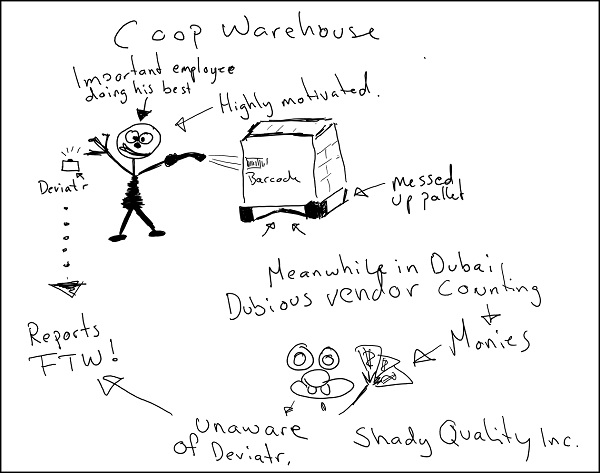 Coop Warehouse
Important employee
doing his best
Highly motivated.
Deviatr
Barcode
Messed
up pallet
Meanwhile in Dubai
Dubious vendor counting
Monies
Reports
FTW!
unaware
of Deviatr.
Shady Quality Inc.